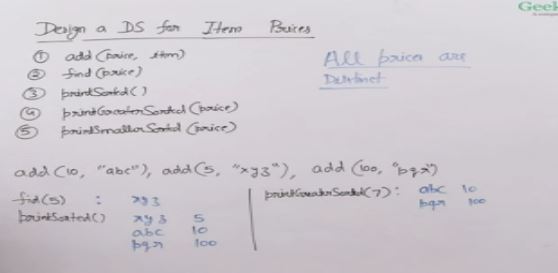 Geek
Design a DS for Item Prices
① add (price, item)
② find (price)
③ printSorted()
④ printGreaterSorted (price)
⑤ printSmallerSorted (price)
All prices are
Distinct
add (10, "abc"), add(5, "xyz"), add (100, "pqr")
find(5) : xyz
printSorted() xyz 5
abc 10
pqr 100
printGreaterSorted(7) : abc 10
pqr 100